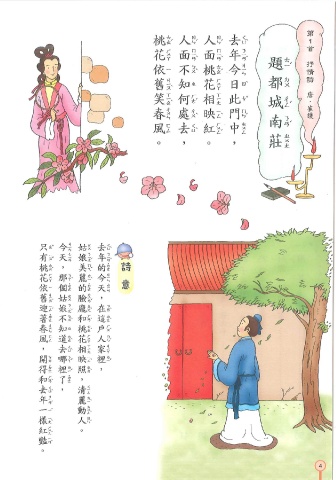 第1首 抒情詩 唐 崔護
題都城南莊
去年今日此門中，
人面桃花相映紅。
人面不知何處去，
桃花依舊笑春風。
詩意
去年的今天，在這戶人家裡，
姑娘美麗的臉龐和桃花相映照，清麗動人。
今天，那個姑娘不知道去哪裡了，
只有桃花依舊迎著春風，開得和去年一樣紅豔。
4